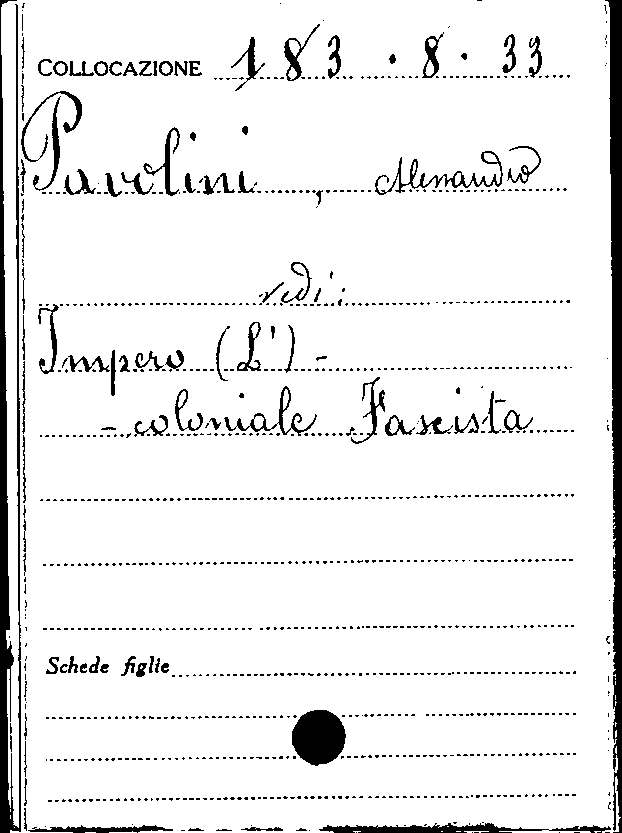 COLLOCAZIONE 183.8.33
Pavolini, Alessandro
vedi:
Impero (L') -
- coloniale Fascista
Schede figlie